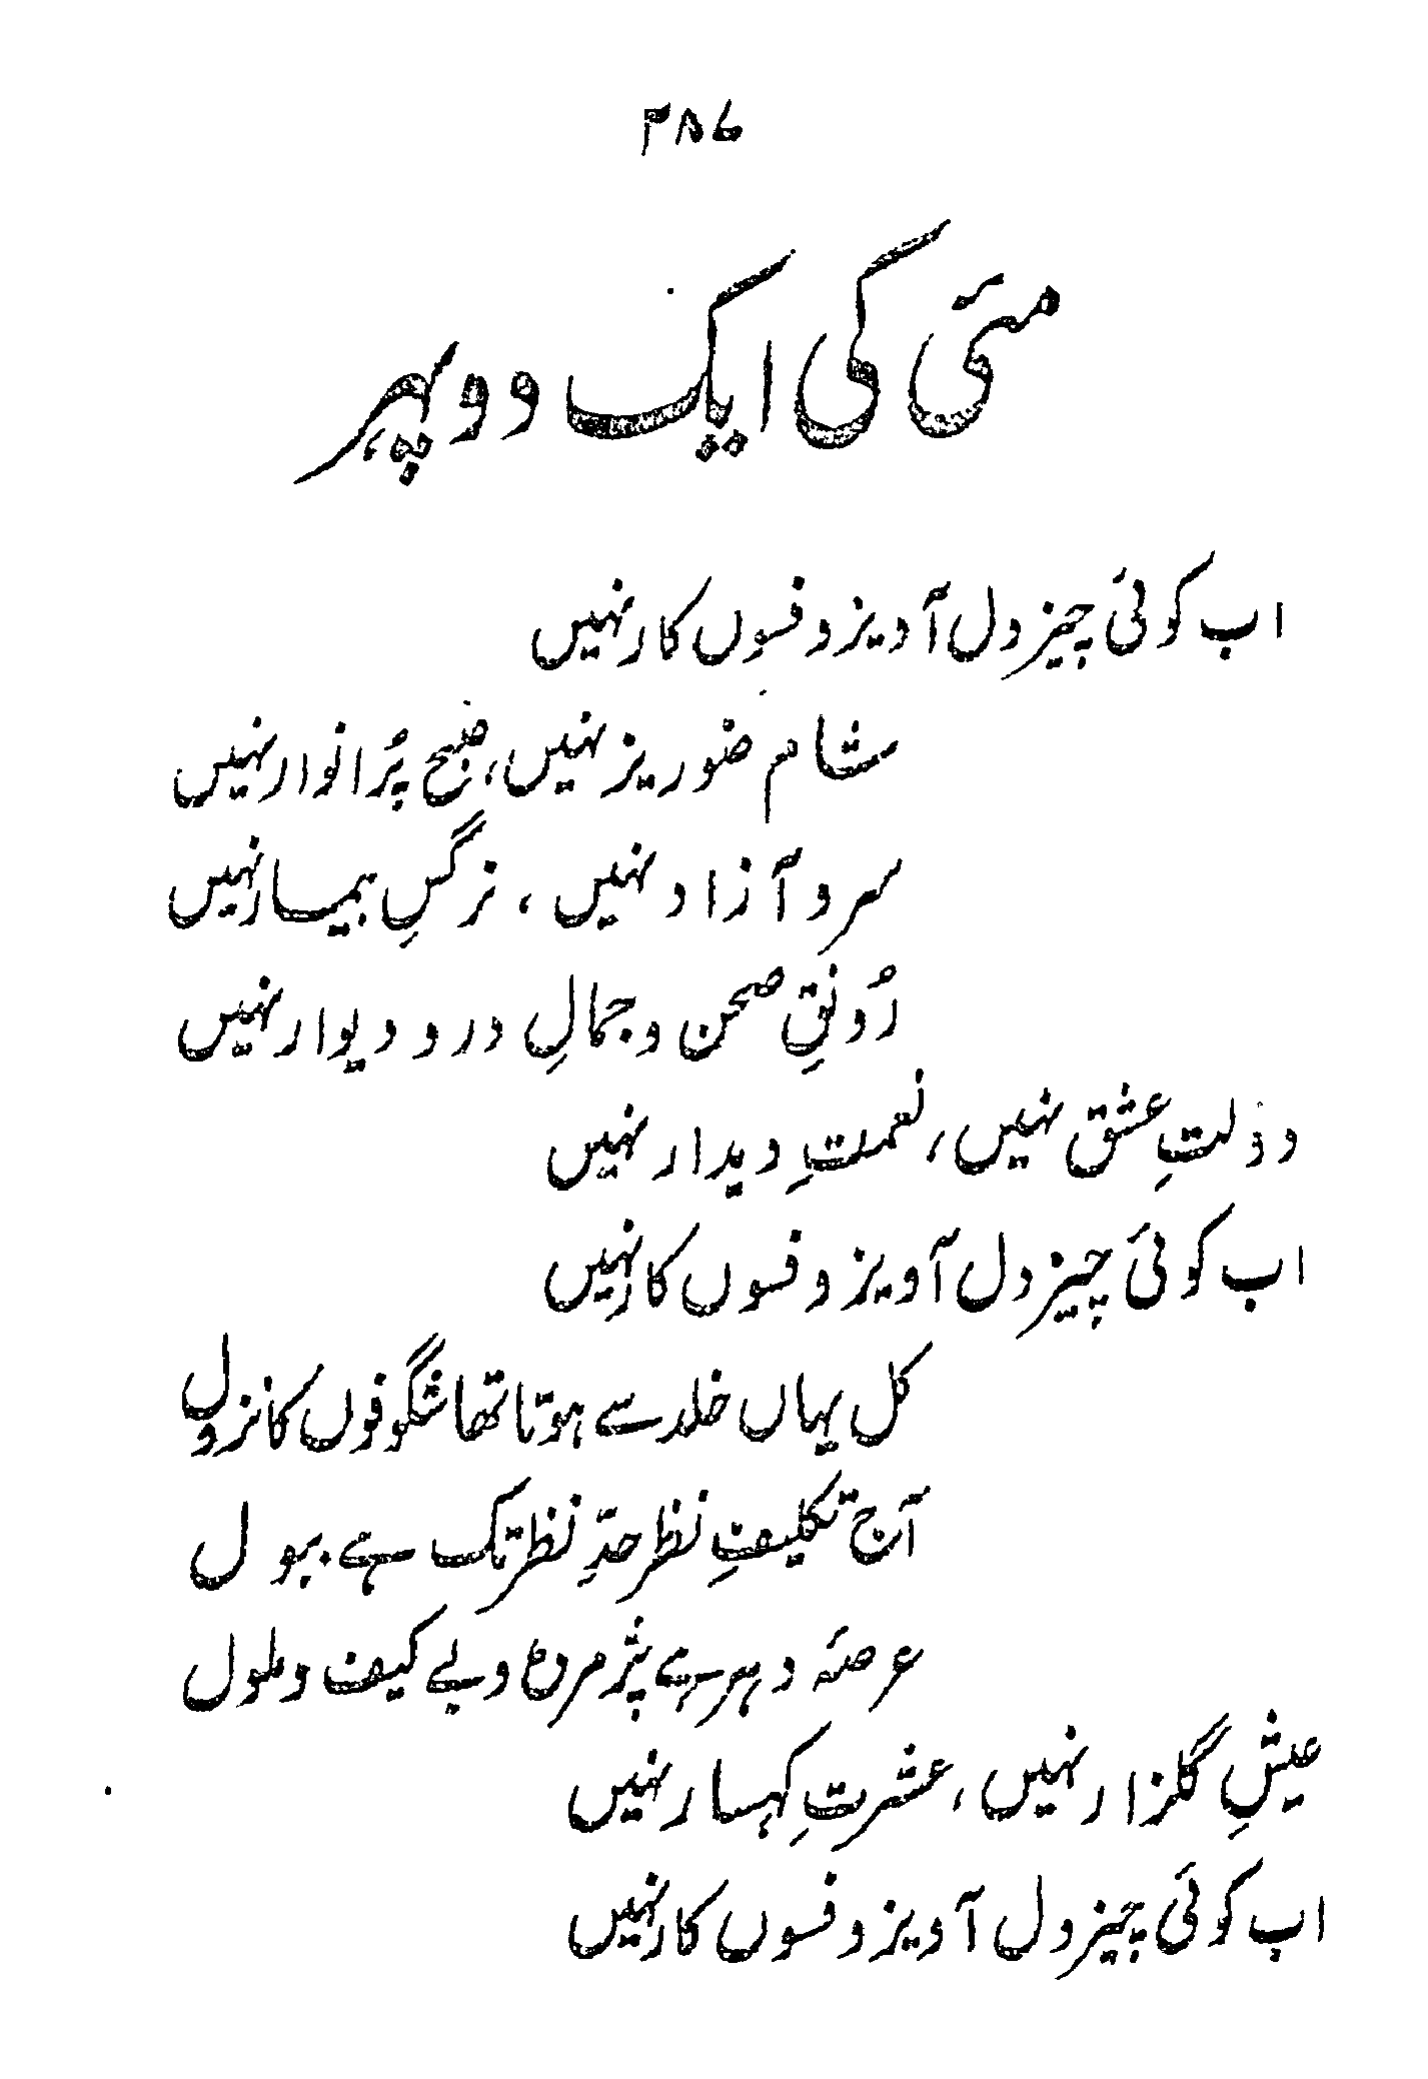 ۳۸۶
مئی کی ایک دوپہر
اب کوئی چیز دل آویز و فسوں کار نہیں
شام ضوریز نہیں، صبح پُر انوار نہیں
سرو آزاد نہیں، نرگسِ بیمار نہیں
رُونقِ صحن و جمالِ در و دیوار نہیں
دولتِ عشق نہیں، نعمتِ دیدار نہیں
اب کوئی چیز دل آویز و فسوں کار نہیں
کل یہاں خلد سے ہوتا تھا شگوفوں کا نزول
آج تکلیفِ نظر حدِّ نظر تک ہے ببول
عرصۂ دہر ہے پژمردہ و بے کیف و ملول
عیشِ گلزار نہیں، عشرتِ کہسار نہیں
اب کوئی چیز دل آویز و فسوں کار نہیں